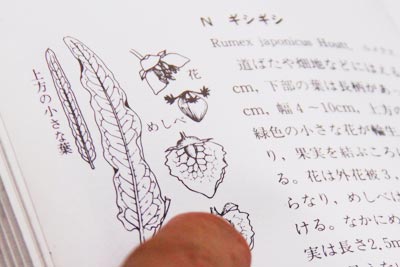 N ギシギシ
Rumex japonicus Houtt.
道ばたや畑地などにはえる
cm, 下部の葉は長柄があっ
cm, 幅4～10cm, 上方の
緑色の小さな花が輪生
り，果実を結ぶころに
る。花は外花被3，
らなり，めしべは
ける。なかにめ
実は長さ2.5m
上方の小さな葉
花
めしべ